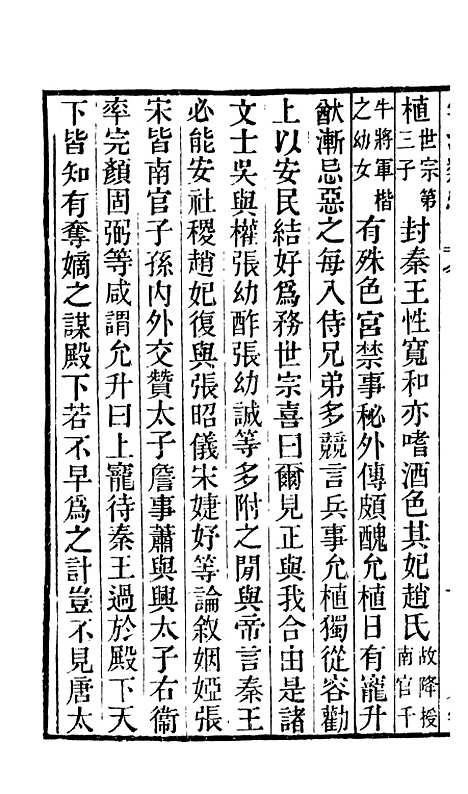 植世宗第三子封秦王性寬和亦嗜酒色其妃趙氏故降授南官千
牛將軍楷之幼女有殊色宮禁事秘外傳頗醜允植日有寵升
猷漸忌惡之每入侍兄弟多競言兵事允植獨從容勸
上以安民結好爲務世宗喜曰爾見正與我合由是諸
文士吳與權張幼酢張幼誠等多附之閒與帝言秦王
必能安社稷趙妃復與張昭儀宋婕妤等論敘姻婭張
宋皆南官子孫內外交贊太子詹事蕭與興太子右衞
率完顏固弼等咸謂允升曰上寵待秦王過於殿下天
下皆知有奪嫡之謀殿下若不早爲之計豈不見唐太